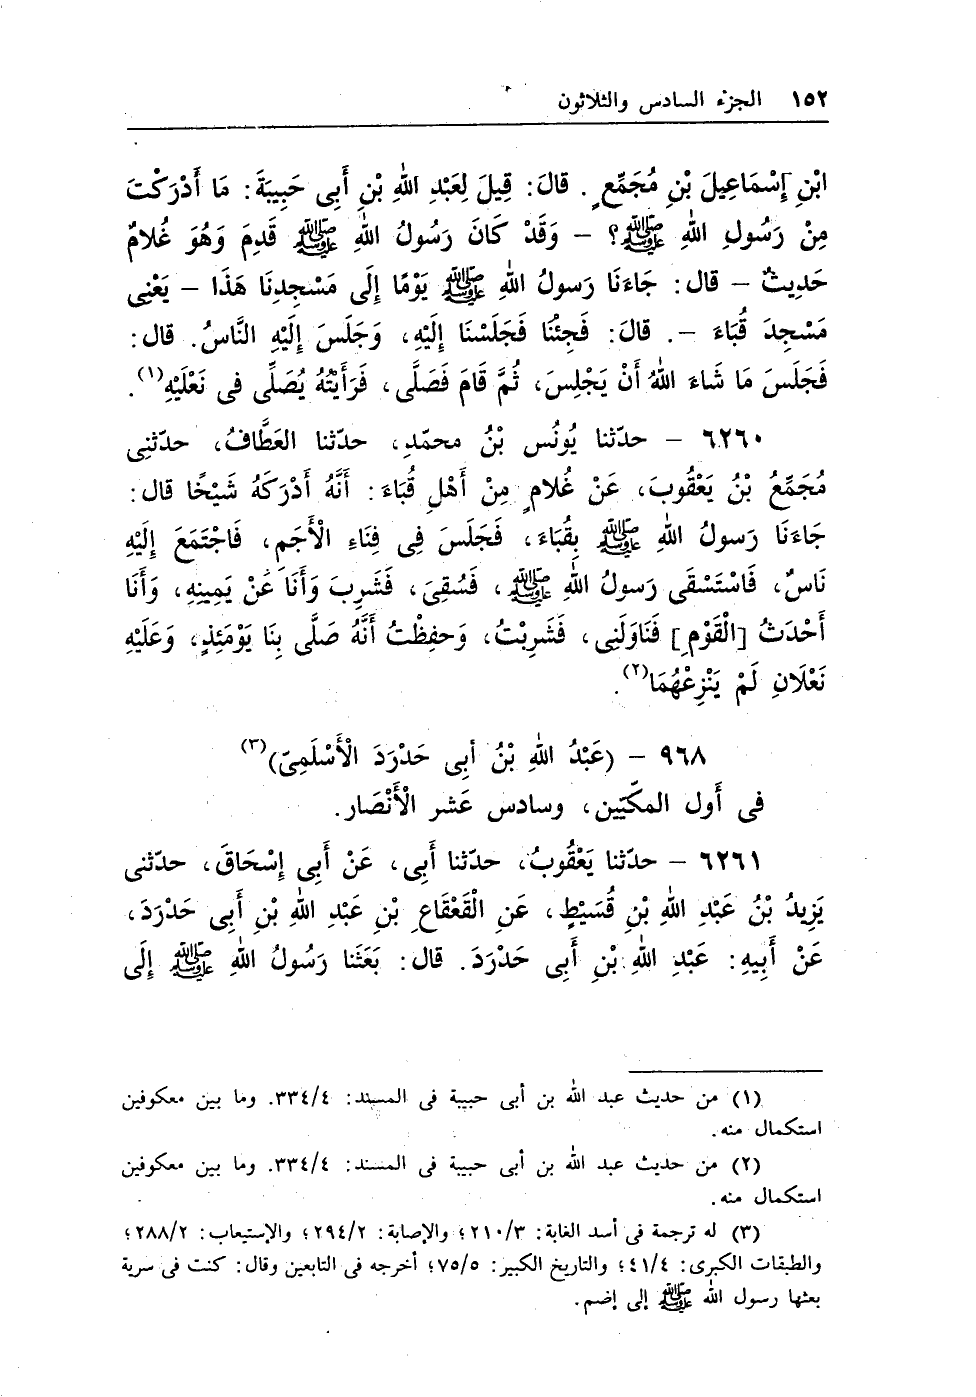 ١٥٢ الجزء السادس والثلاثون
ابْنِ إِسْمَاعِيلَ بْنِ مُجَمِّعٍ. قالَ: قِيلَ لِعَبْدِ اللهِ بْنِ أَبِى حَبِيبَةَ: مَا أَدْرَكْتَ
مِنْ رَسُولِ اللهِ ﷺ؟ - وَقَدْ كَانَ رَسُولُ اللهِ ﷺ قَدِمَ وَهُوَ غُلامٌ
حَدِيثٌ - قال: جَاءَنَا رَسولُ اللهِ ﷺ يَوْمًا إِلَى مَسْجِدِنَا هَذَا - يَعْنِى
مَسْجِدَ قُبَاءَ -. قالَ: فَجِئْنَا فَجَلَسْنَا إِلَيْهِ، وَجَلَسَ إِلَيْهِ النَّاسُ. قال:
فَجَلَسَ مَا شَاءَ اللهُ أَنْ يَجْلِسَ، ثُمَّ قَامَ فَصَلَّى، فَرَأَيْتُهُ يُصَلِّى فى نَعْلَيْهِ(١).
٦٢٦٠ - حدّثنا يُونُس بْنُ محمّدِ، حدّثنا العَطَّافُ، حدّثنِى
مُجَمِّعُ بْنُ يَعْقُوبَ، عَنْ غُلامٍ مِنْ أَهْلِ قُبَاءَ: أَنَّهُ أَدْرَكَهُ شَيْخًا قال:
جَاءَنَا رَسولُ اللهِ ﷺ بِقُبَاءَ، فَجَلَسَ فِى فِنَاءِ الْأَجَمِ، فَاجْتَمَعَ إِلَيْهِ
نَاسٌ، فَاسْتَسْقَى رَسولُ اللهِ ﷺ، فَسُقِىَ، فَشَرِبَ وَأَنَا عَنْ يَمِينِهِ، وَأَنَا
أَحْدَثُ [الْقَوْمِ] فَنَاوَلَنِى، فَشَرِبْتُ، وَحفِظْتُ أَنَّهُ صَلَّى بِنَا يَوْمَئِذٍ، وَعَلَيْهِ
نَعْلَانِ لَمْ يَنْزِعْهُمَا(٢).
٩٦٨ - (عَبْدُ اللهِ بْنُ أبِى حَدْرَدَ الْأَسْلَمِىّ)(٣)
فى أول المكّيّين، وسادس عَشر الْأَنْصَار.
٦٢٦١ - حدّثنا يَعْقُوبُ، حدّثنا أَبِى، عَنْ أَبِى إِسْحَاقَ، حدّثنى
يَزِيدُ بْنُ عَبْدِ اللهِ بْنِ قُسَيْطٍ، عَنِ الْقَعْقَاعِ بْنِ عَبْدِ اللهِ بْنِ أَبِى حَدْرَدَ،
عَنْ أَبِيهِ: عَبْدِ اللهِ بْنِ أَبِى حَدْرَدَ. قال: بَعَثَنا رَسُولُ اللهِ ﷺ إِلَى
(١) من حديث عبد الله بن أبى حبيبة فى المسند: ٣٣٤/٤. وما بين معكوفين
استكمال منه.
(٢) من حديث عبد الله بن أبى حبيبة فى المسند: ٣٣٤/٤. وما بين معكوفين
استكمال منه.
(٣) له ترجمة فى أسد الغابة: ٢١٠/٣؛ والإصابة: ٢٩٤/٢؛ والإستيعاب: ٢٨٨/٢؛
والطبقات الكبرى: ٤١/٤؛ والتاريخ الكبير: ٧٥/٥؛ أخرجه فى التابعين وقال: كنت فى سرية
بعثها رسول الله ﷺ إلى إضم.